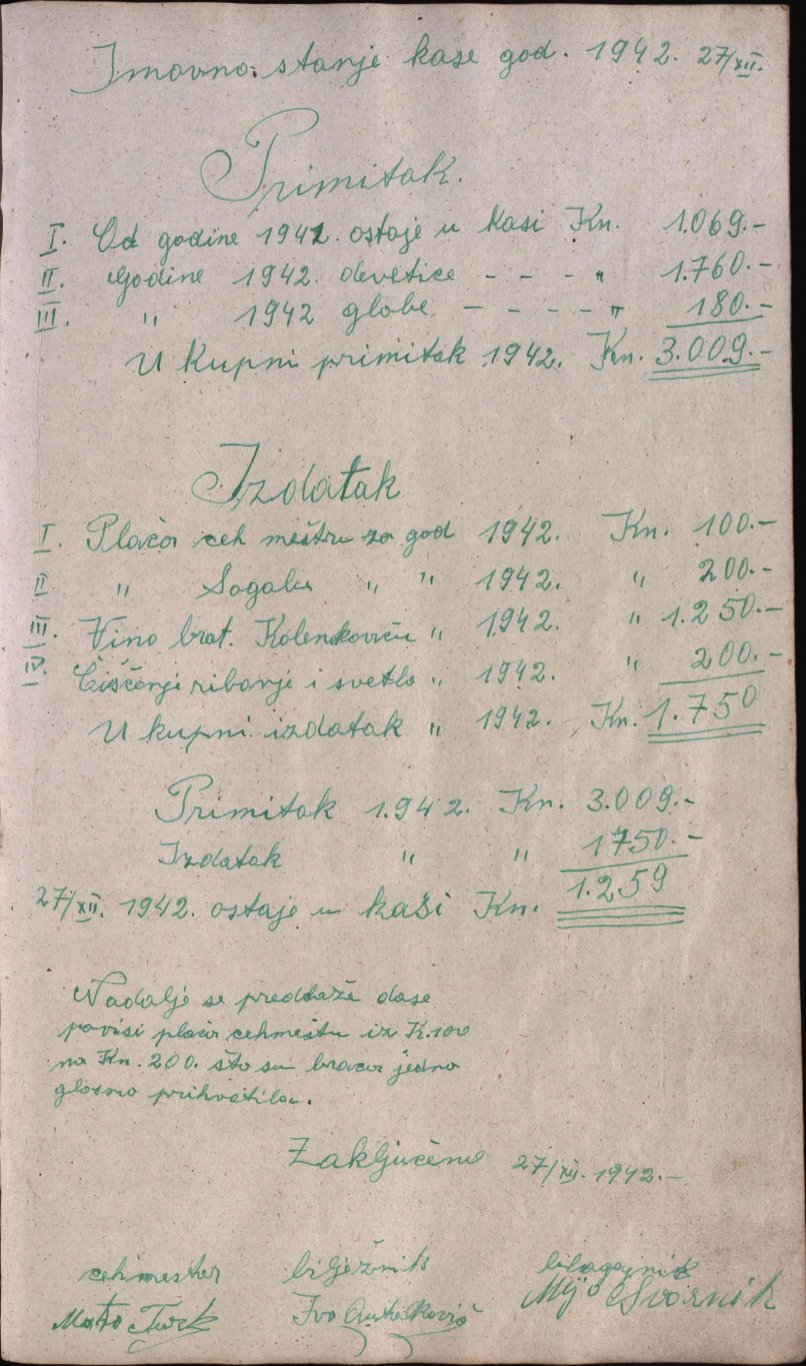 Imovno stanje kase god. 1942. 27/XII.
Primitak.
I. Od godine 1941. ostaje u kasi Kn. 1.069.-
II. Godine 1942. devetice - - - " 1.760.-
III. " 1942 globe - - - - " 180.-
U kupni primitak 1942. Kn. 3.009.-
Izdatak
I. Plaća ceh meštru za god 1942. Kn. 100.-
II " " " 1942. " 200.-
III. Vino brat. Kolenkoviću " 1942. " 1.250.-
IV. Čiščenje ribanje i svetlo " 1942. " 200.-
U kupni izdatak " 1942. Kn. 1.750
Primitak 1.942. Kn. 3.009.-
Izdatak " " 1750.-
27/XII. 1942. ostaje u kaši Kn. 1.259
Nadalje se predlaže dase
povisi plaća cehmeštru iz K.100
na Kn. 200. što su braća jedno
glasno prihvatila.
Zaključeno 27/XII. 1942.-
cehmester bilježnik blagajnik
Mato Turk Ivo Mijo Svornik